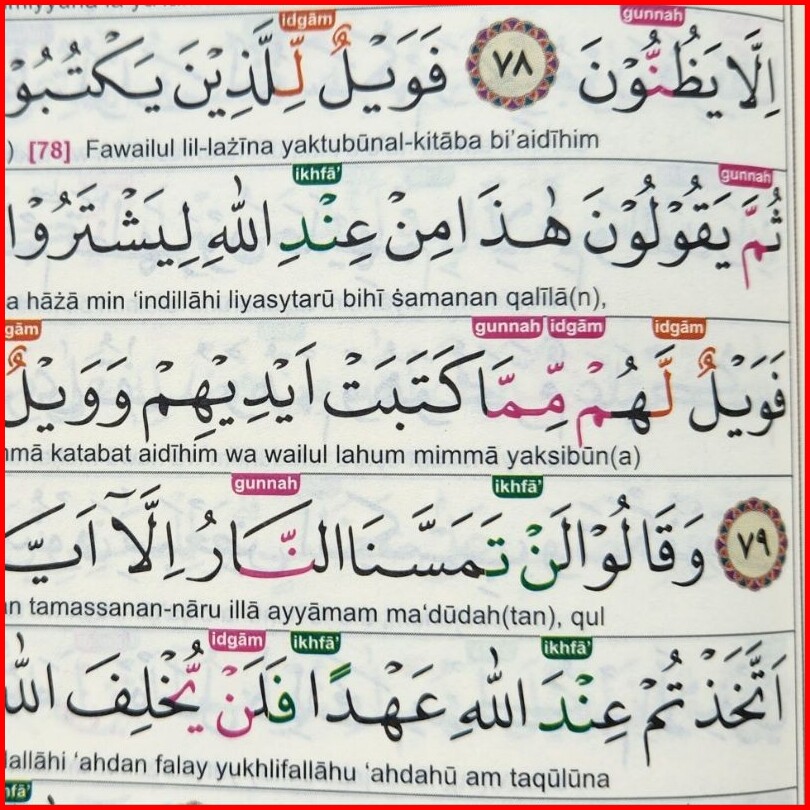 idgām gunnah
اِلَّا يَظُنُّوْنَ ٧٨ فَوَيْلٌ لِّلَّذِيْنَ يَكْتُبُوْ
) [78] Fawailul lil-lażīna yaktubūnal-kitāba bi’aidīhim
ikhfā’ gunnah
ثُمَّ يَقُوْلُوْنَ هٰذَا مِنْ عِنْدِ اللّٰهِ لِيَشْتَرُوْا
a hāżā min ‘indillāhi liyasytarū bihī ṡamanan qalīlā(n),
gām gunnah idgām idgām
فَوَيْلٌ لَّهُمْ مِّمَّا كَتَبَتْ اَيْدِيْهِمْ وَوَيْلٌ
mā katabat aidīhim wa wailul lahum mimmā yaksibūn(a)
gunnah ikhfā’
٧٩ وَقَالُوْا لَنْ تَمَسَّنَا النَّارُ اِلَّآ اَيَّ
n tamassanan-nāru illā ayyāmam ma‘dūdah(tan), qul
idgām ikhfā’ ikhfā’
اَتَّخَذْتُمْ عِنْدَ اللّٰهِ عَهْدًا فَلَنْ يُّخْلِفَ اللّٰه
lallāhi ‘ahdan falay yukhlifallāhu ‘ahdahū am taqūlūna